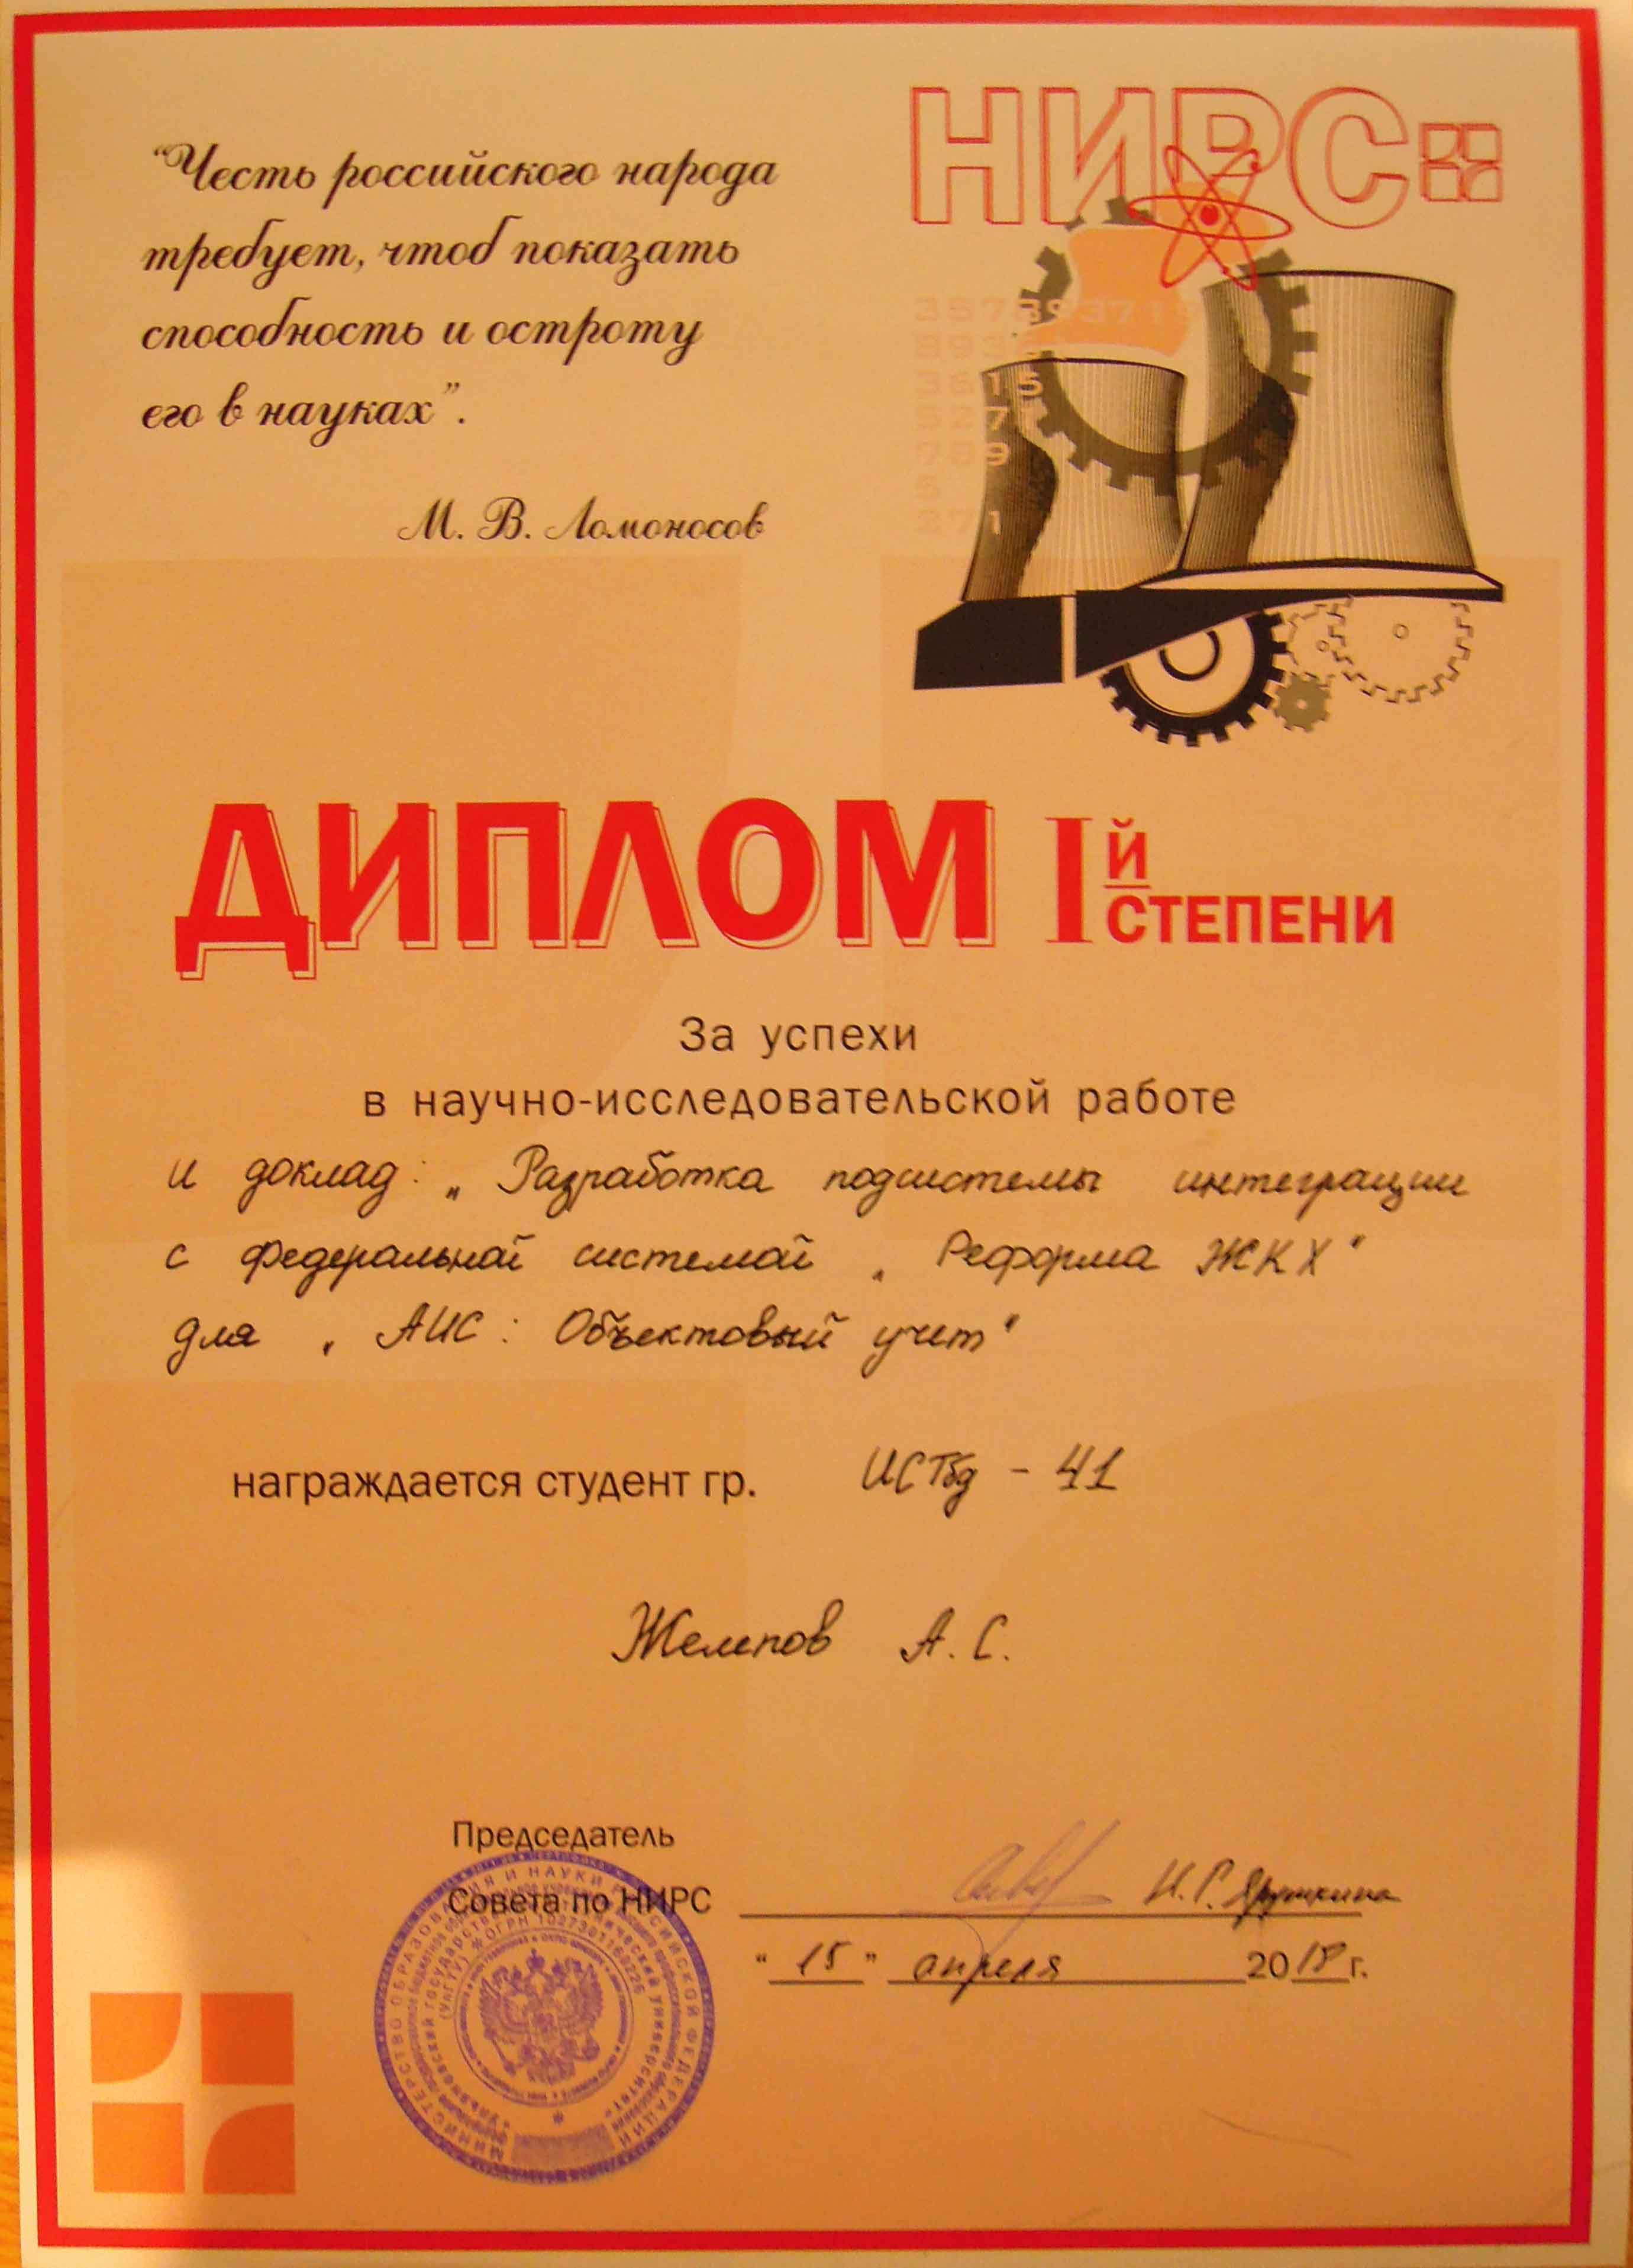 "Честь российского народа
требует, чтоб показать
способность и остроту
его в науках".
М. В. Ломоносов
НИРС
ДИПЛОМ I й СТЕПЕНИ
За успехи
в научно-исследовательской работе
и доклад: „Разработка подсистемы интеграции
с федеральной системой „Реформа ЖКХ"
для „АИС: Объектовый учет"
награждается студент гр. ИСТбд - 41
Желепов А. С.
Председатель
Совета по НИРС Н.Г. Ярушкина
"15" апреля 2018 г.
МИНИСТЕРСТВО ОБРАЗОВАНИЯ И НАУКИ РОССИЙСКОЙ ФЕДЕРАЦИИ